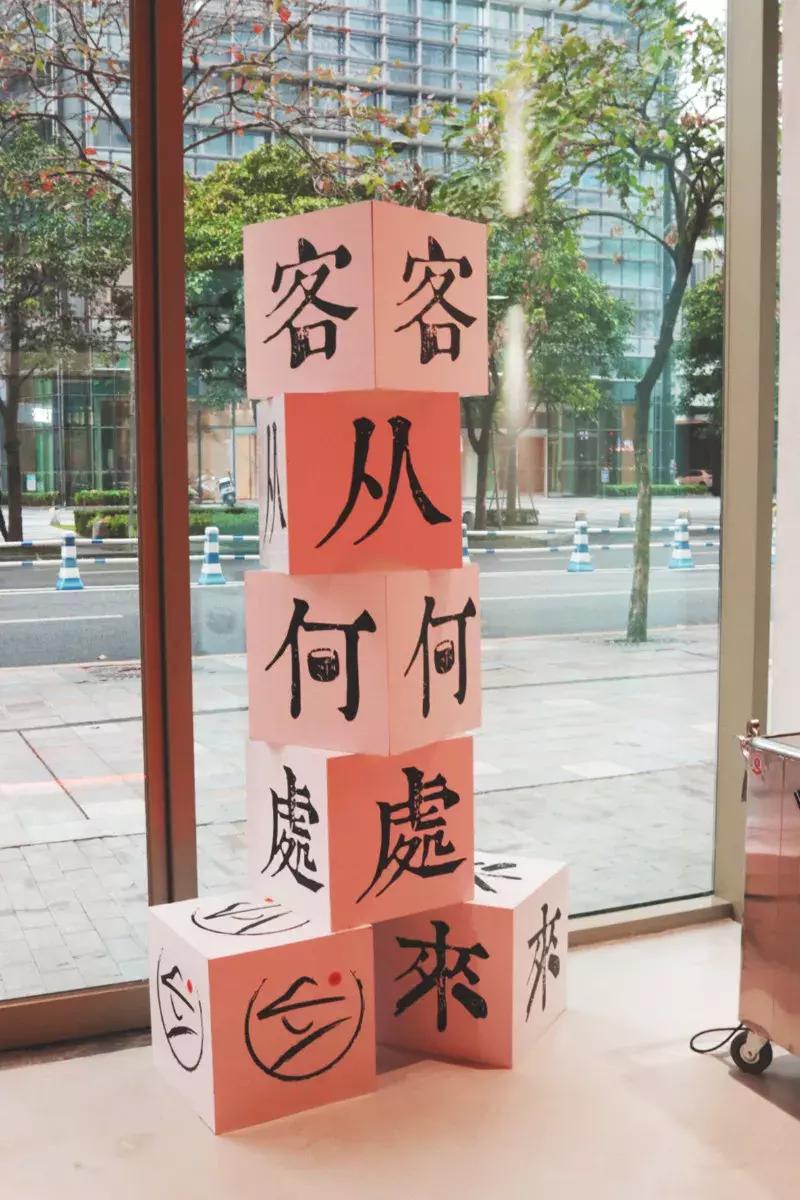 客 客
从 从
何 何
處 處
來 來